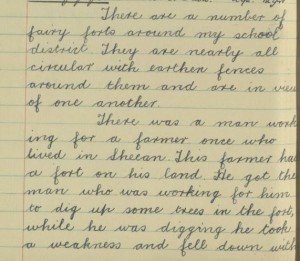 There are a number of
fairy forts around my school
district. They are nearly all
circular with earthen fences
around them and are in view
of one another.
There was a man work
ing for a farmer once who
lived in Sheean. This farmer had
a fort on his land. He got the
man who was working for him
to dig up some trees in the fort,
while he was digging he took
a weakness and fell down with